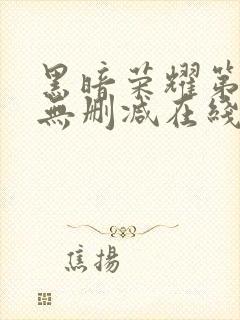 黑暗荣耀第
無删减在綫
焦揚